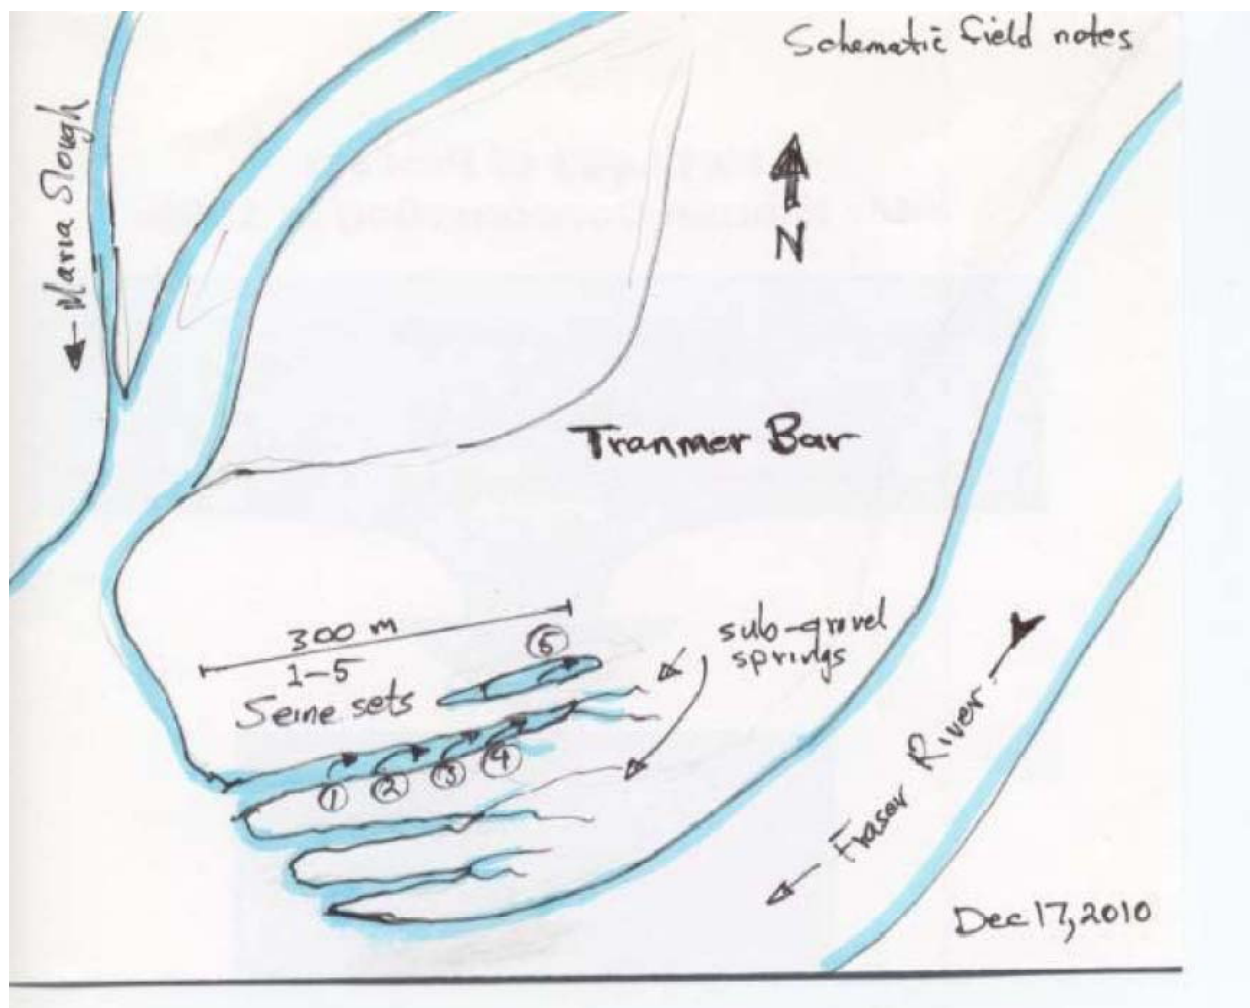 Schematic field notes
← Maria Slough
N
Tranmer Bar
300 m
1-5
Seine sets
5
sub-gravel
springs
1 2 3 4
← Fraser River →
Dec 17, 2010